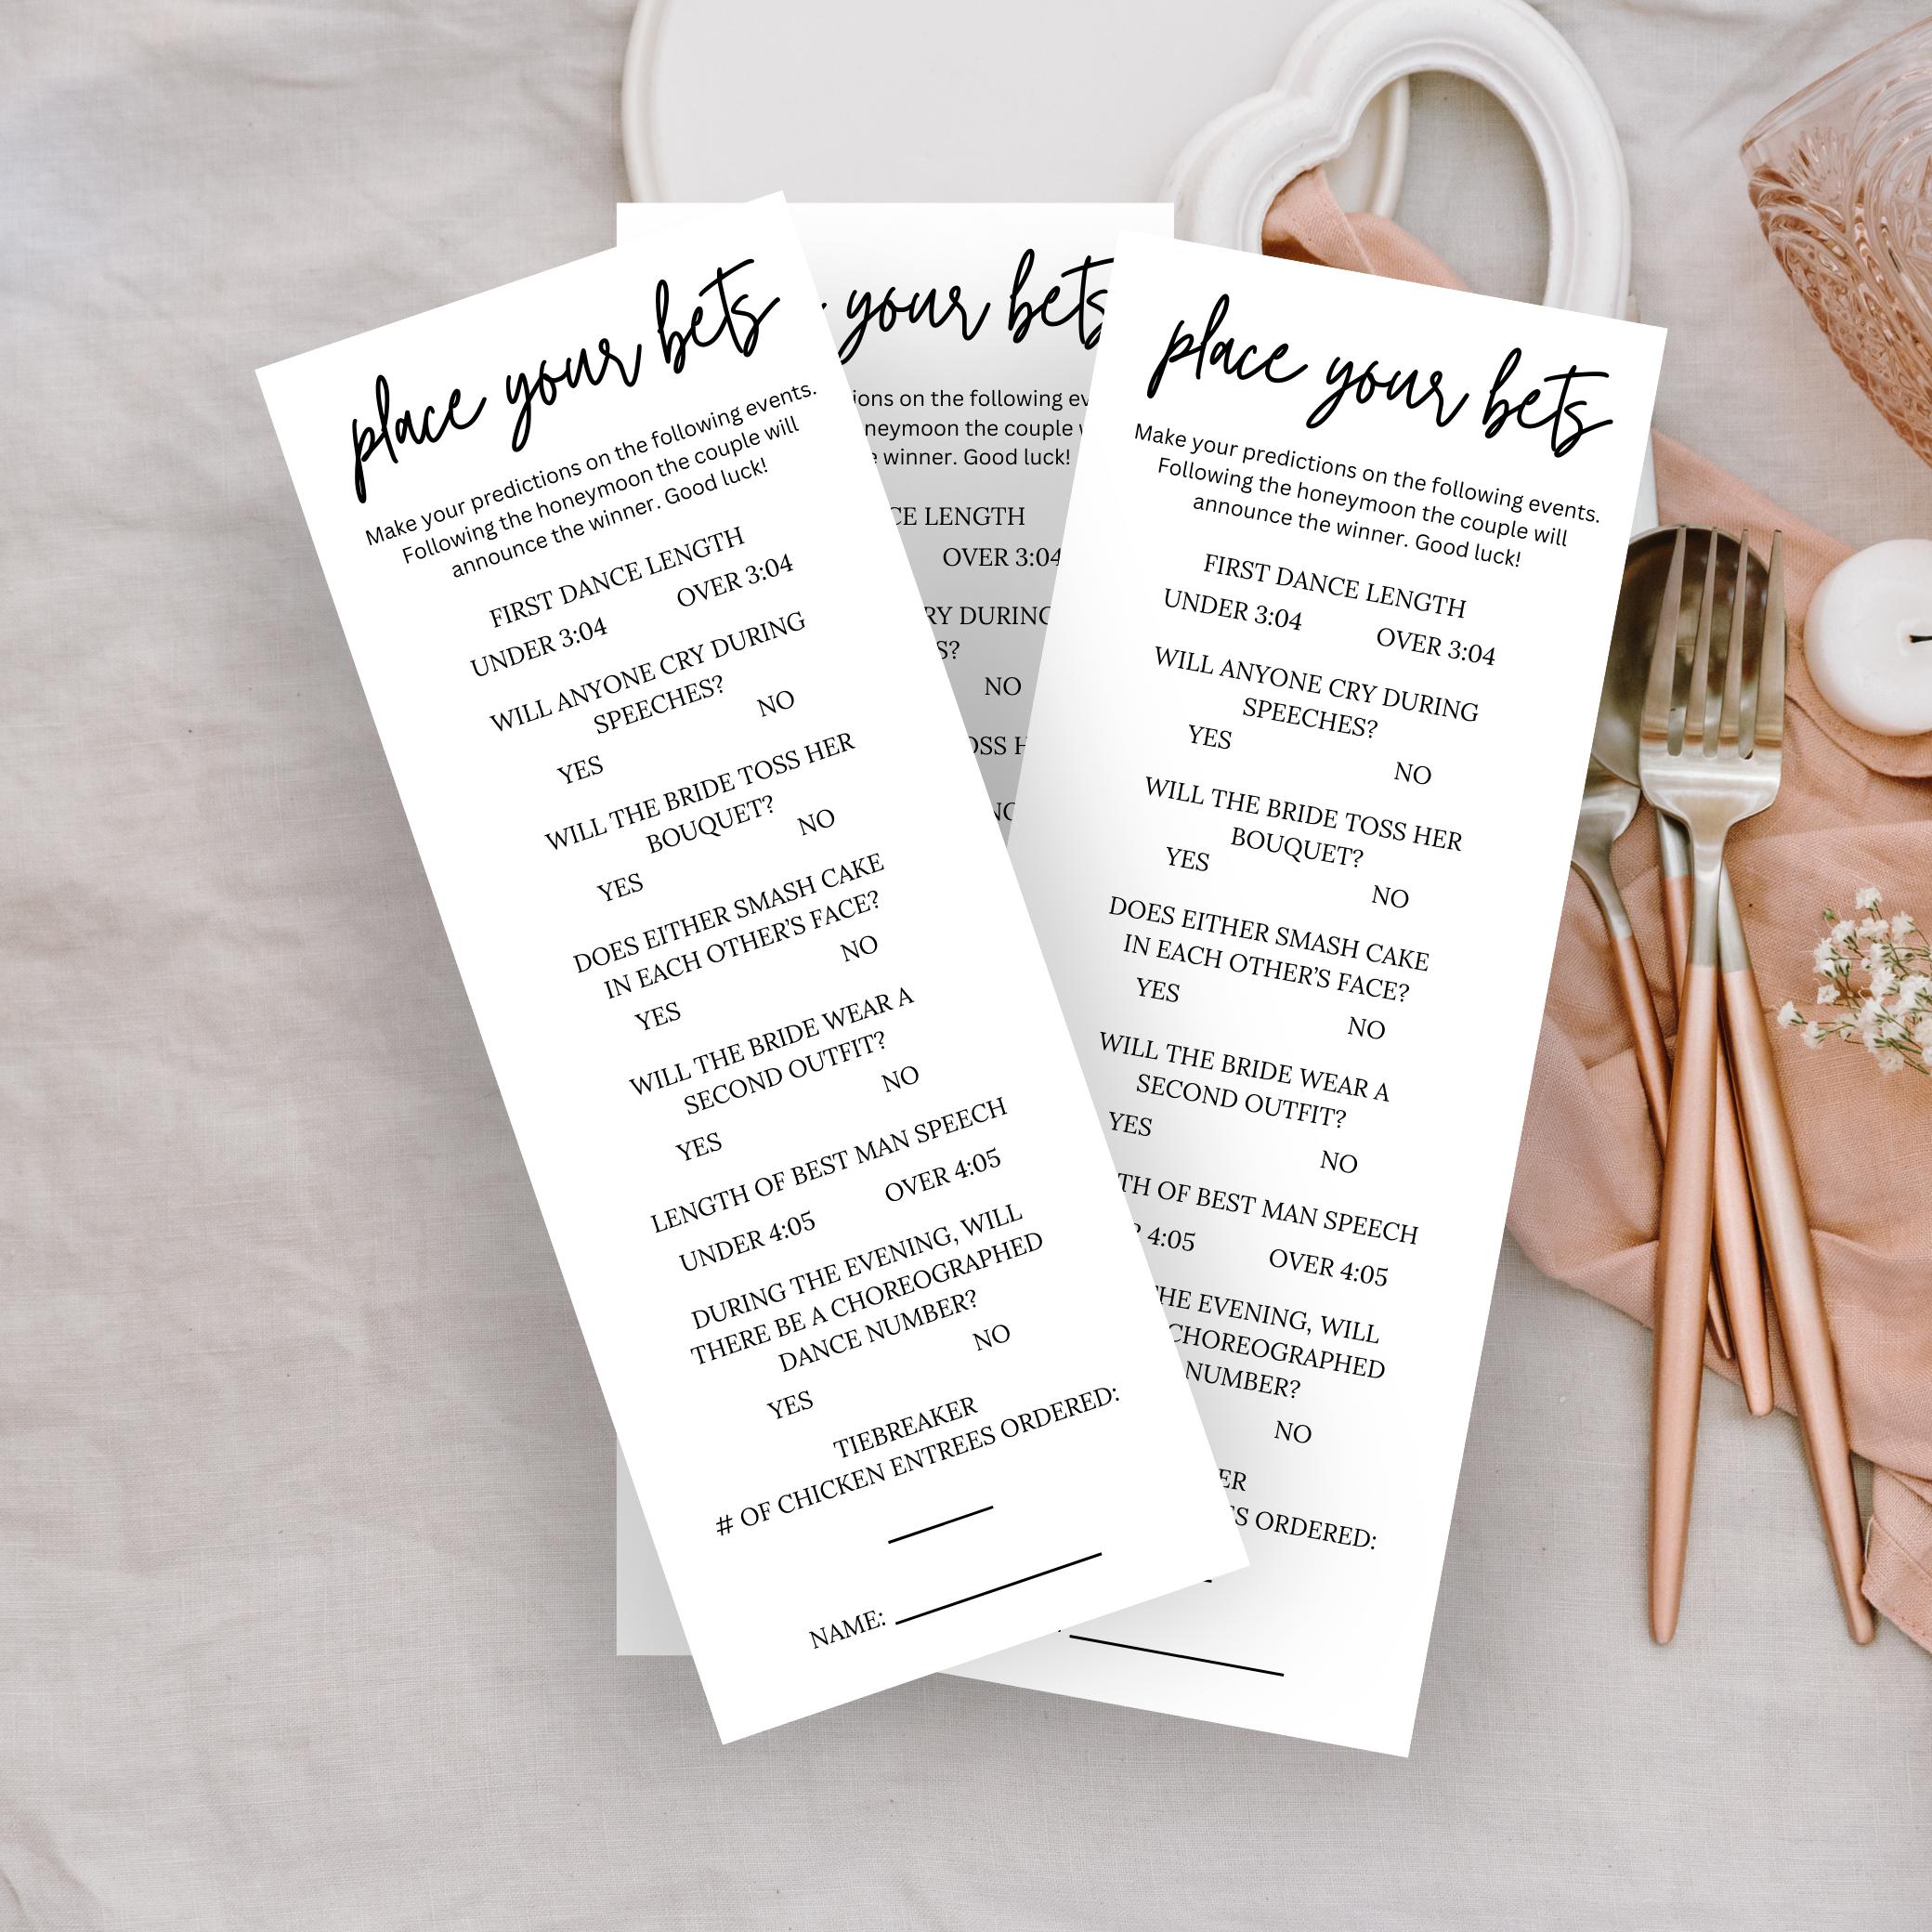 place your bets
Make your predictions on the following events.
Following the honeymoon the couple will
announce the winner. Good luck!
FIRST DANCE LENGTH
UNDER 3:04 OVER 3:04
WILL ANYONE CRY DURING
SPEECHES?
YES NO
WILL THE BRIDE TOSS HER
BOUQUET?
YES NO
DOES EITHER SMASH CAKE
IN EACH OTHER'S FACE?
YES NO
WILL THE BRIDE WEAR A
SECOND OUTFIT?
YES NO
LENGTH OF BEST MAN SPEECH
UNDER 4:05 OVER 4:05
DURING THE EVENING, WILL
THERE BE A CHOREOGRAPHED
DANCE NUMBER?
YES NO
TIEBREAKER
# OF CHICKEN ENTREES ORDERED:
NAME:
your bets
on the following
the couple
winner. Good luck!
LENGTH
OVER 3:04
DURING
NO
place your bets
Make your predictions on the following events.
Following the honeymoon the couple will
announce the winner. Good luck!
FIRST DANCE LENGTH
UNDER 3:04 OVER 3:04
WILL ANYONE CRY DURING
SPEECHES?
YES NO
WILL THE BRIDE TOSS HER
BOUQUET?
YES NO
DOES EITHER SMASH CAKE
IN EACH OTHER'S FACE?
YES NO
WILL THE BRIDE WEAR A
SECOND OUTFIT?
YES NO
OF BEST MAN SPEECH
4:05 OVER 4:05
THE EVENING, WILL
CHOREOGRAPHED
NUMBER?
NO
ORDERED: